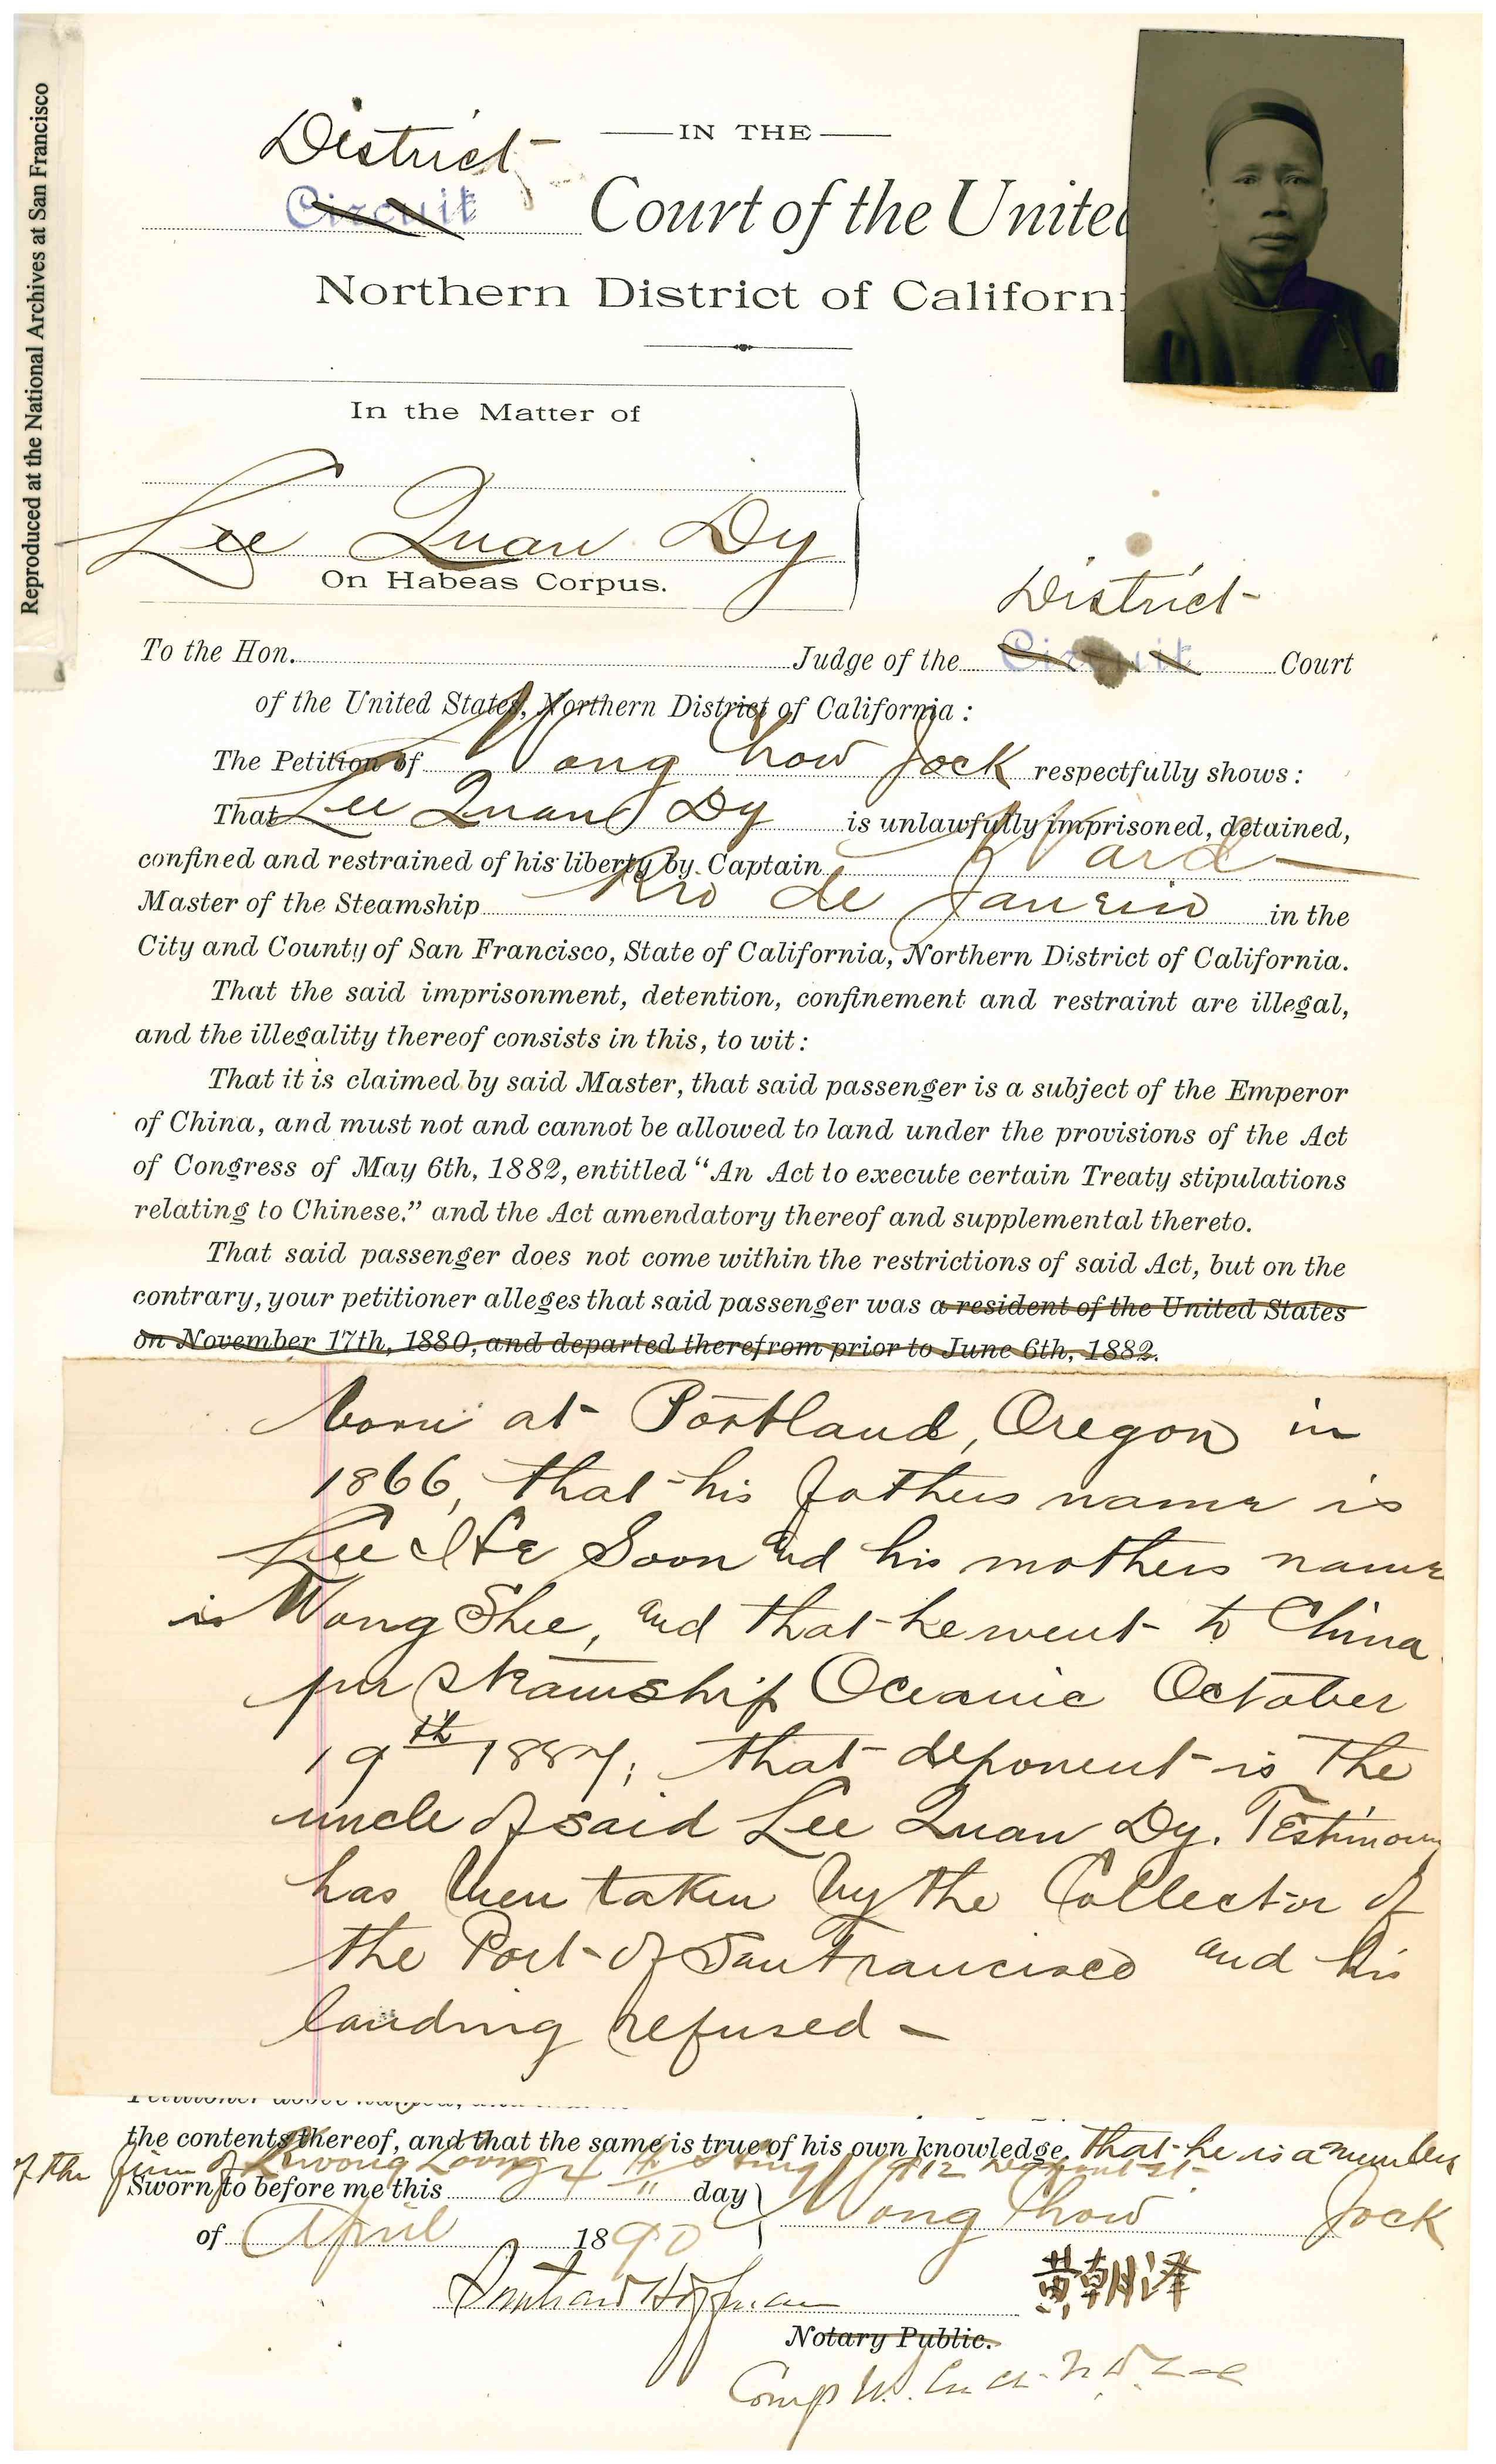 Reproduced at the National Archives at San Francisco
IN THE
District
Circuit Court of the United
Northern District of Californi
In the Matter of
Lee Quan Dy
On Habeas Corpus.
District
To the Hon. Judge of the Circuit Court
of the United States, Northern District of California :
The Petition of Wong Chow Jock respectfully shows :
That Lee Quan Dy is unlawfully imprisoned, detained,
confined and restrained of his liberty by Captain Ward
Master of the Steamship Rio de Janeiro in the
City and County of San Francisco, State of California, Northern District of California.
That the said imprisonment, detention, confinement and restraint are illegal,
and the illegality thereof consists in this, to wit :
That it is claimed by said Master, that said passenger is a subject of the Emperor
of China, and must not and cannot be allowed to land under the provisions of the Act
of Congress of May 6th, 1882, entitled “An Act to execute certain Treaty stipulations
relating to Chinese.” and the Act amendatory thereof and supplemental thereto.
That said passenger does not come within the restrictions of said Act, but on the
contrary, your petitioner alleges that said passenger was a resident of the United States
on November 17th, 1880, and departed therefrom prior to June 6th, 1882.
born at Portland, Oregon in
1866, that his fathers name is
Lee He Soon and his mothers name
is Wong Shee, and that he went to China
per steamship Oceanic October
19th 1887; that deponent is the
uncle of said Lee Quan Dy. Testimony
has been taken by the Collector of
the Port of San Francisco and his
landing refused –
the contents thereof, and that the same is true of his own knowledge, that he is a member
of the firm of Kwong Loong 912 Dupont St
Sworn to before me this 4th day
of April 1890 Wong Chow Jock
黃朝澤
Notary Public.